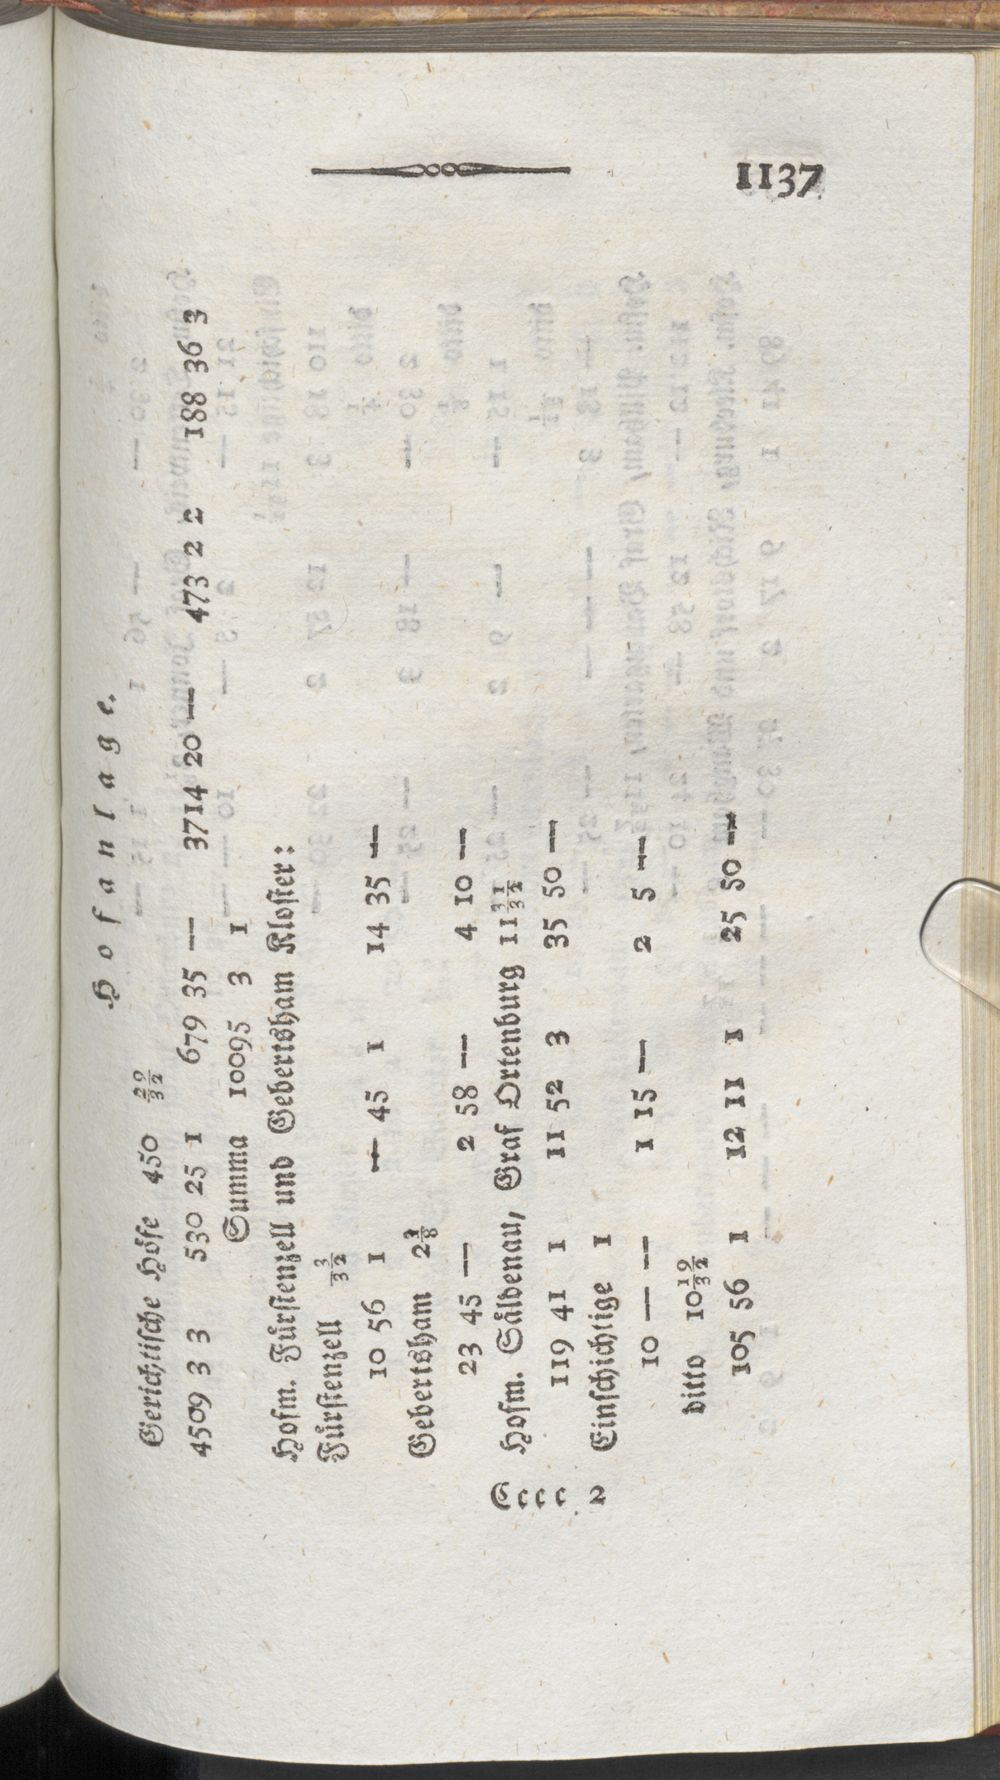 1137
Hofanlage.
Gerichtische Höfe 450 29/32
4509 3 3 530 25 1 679 35 — 3714 20 — 473 2 2 188 36 3
Summa 10095 3 1
Hofm. Fürstenzell und Gebertsham Kloster:
Fürstenzell 3/32
10 56 1 — 45 1 14 35 —
Gebertsham 2 1/8
23 45 — 2 58 — 4 10 —
Hofm. Säldenau, Graf Ortenburg 11 31/32
119 41 1 11 52 3 35 50 —
Einschichtige 1
10 — — 1 15 — 2 5 —
ditto 10 19/32
105 56 1 12 11 1 25 50 —
Cccc 2